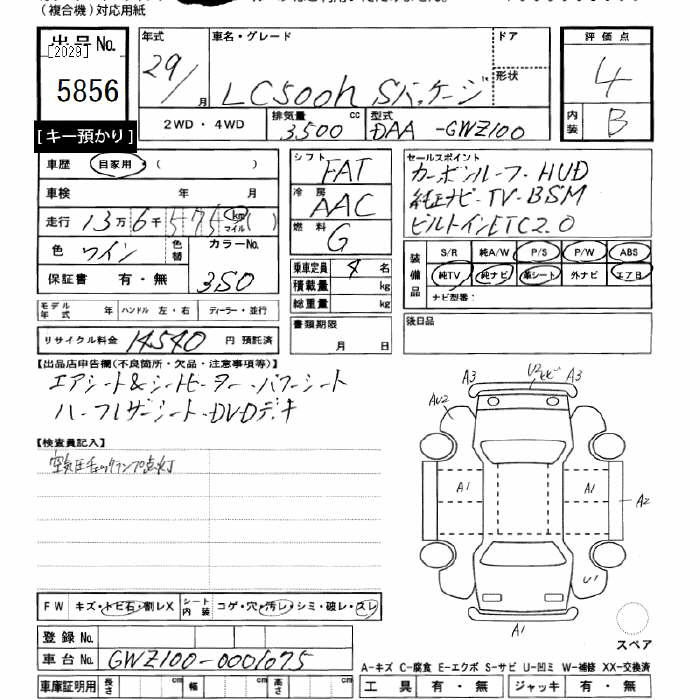 （複合機）対応用紙
出品No.
[2029]
5856
[キー預かり]
年式
29/
月
車名・グレード
LC500h Sパッケージ
ドア
形状
2WD・4WD
排気量
3500 cc
型式
DAA-GWZ100
評価点
4
内装
B
車歴 自家用・( )
車検 年 月
走行 13万6千575 km マイル ( )
色 ワイン 色替 カラーNo.
保証書 有・無 3S0
モデル年式 年 ハンドル 左・右 ディーラー・並行
リサイクル料金 14540 円 預託済
シフト
FAT
冷房
AAC
燃料
G
乗車定員 4 名
積載量 kg
総重量 kg
書類期限
月 日
セールスポイント
カーボンルーフ・HUD
純正ナビ・TV・BSM
ビルトインETC2.0
装備品
S/R 純A/W P/S P/W ABS
純TV 純ナビ 革シート 外ナビ エアB
ナビ型番：
後日品
【出品店申告欄(不良箇所・欠品・注意事項等)】
エアシート&シートヒーター・パワーシート
ハーフレザーシート・DVDデキ
【検査員記入】
空気圧チェックランプ点灯
A3 U2 A3
AU2
A1 A1 A2
U1
A1
スペア
FW キズ・トビ石・割レX シート内装 コゲ・穴・汚レ・シミ・破レ・スレ
登録No.
車台No. GWZ100-0001075
車庫証明用 長さ cm 幅 cm 高さ cm
A-キズ C-腐食 E-エクボ S-サビ U-凹ミ W-補修 XX-交換済
工具 有・無 ジャッキ 有・無